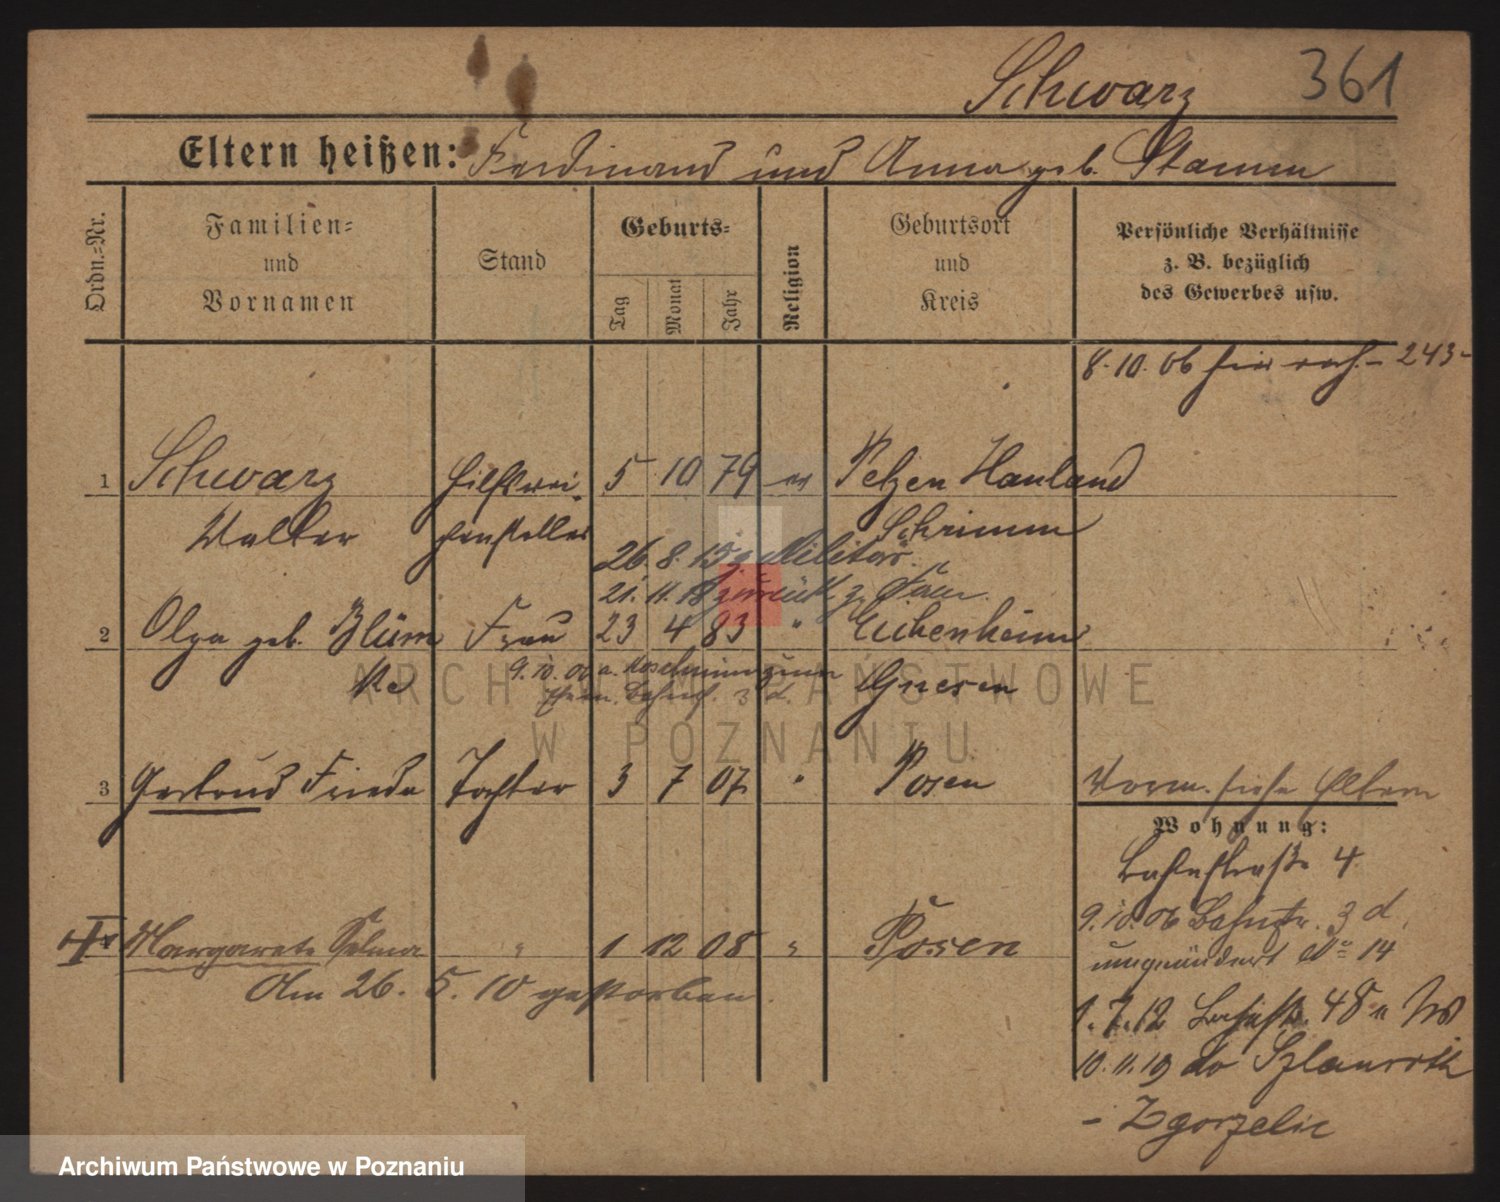 Schwarz 361
Eltern heißen: Ferdinand und Anna geb. Stamm
Ordn.-Nr.
Familien-
und
Vornamen
Stand
Geburts-
Tag
Monat
Jahr
Religion
Geburtsort
und
Kreis
Persönliche Verhältnisse
z. B. bezüglich
des Gewerbes usw.
8.10.06 243
1 Schwarz Hilfswei- 5 10 79 ev Hauland
Walter chensteller Schrimm
26.8.15 z. Militär.
21.11.18 zurück z. Fam.
2 Olga geb. Blüm Frau 23 4 83 " Eichenheim
ke Gnesen
9.10.06 a.
3 d.
3 Gertrud Frieda Tochter 3 7 07 " Posen
Vorm. siehe Eltern
Wohnung:
4
9.10.06 Bahnstr. 3 d.
umgeändert No 14
4 Margarete Selma " 1 12 08 " Posen
Am 26. 5. 10 gestorben.
1.7.12 48a
10.11.19 do
- Zgorzelic
ARCHIWUM PAŃSTWOWE
W POZNANIU
Archiwum Państwowe w Poznaniu